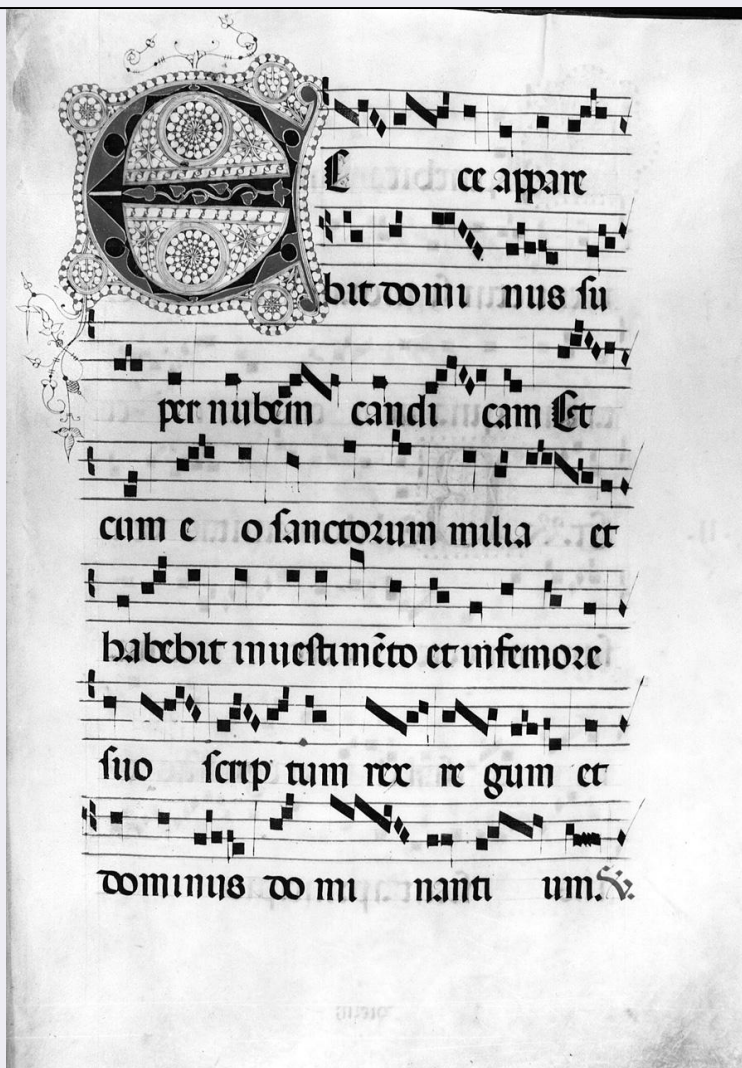 E Ec ce appare
bit domi nus su
per nubem candi cam Et
cum e o sanctorum milia et
habebit inuestimẽto et infemore
suo scrip tum rex re gum et
dominus do mi nanti um. V.